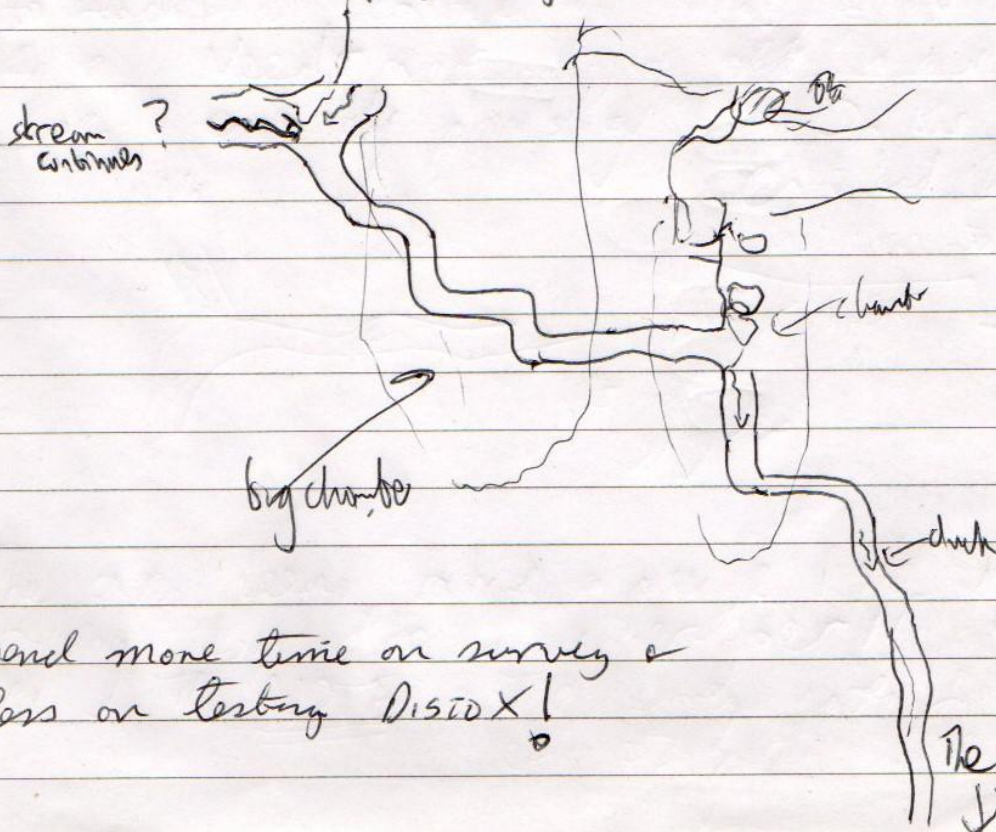 stream ?
continues
big chamber
duck
end more time on survey &
less on testing DISTOX!
The